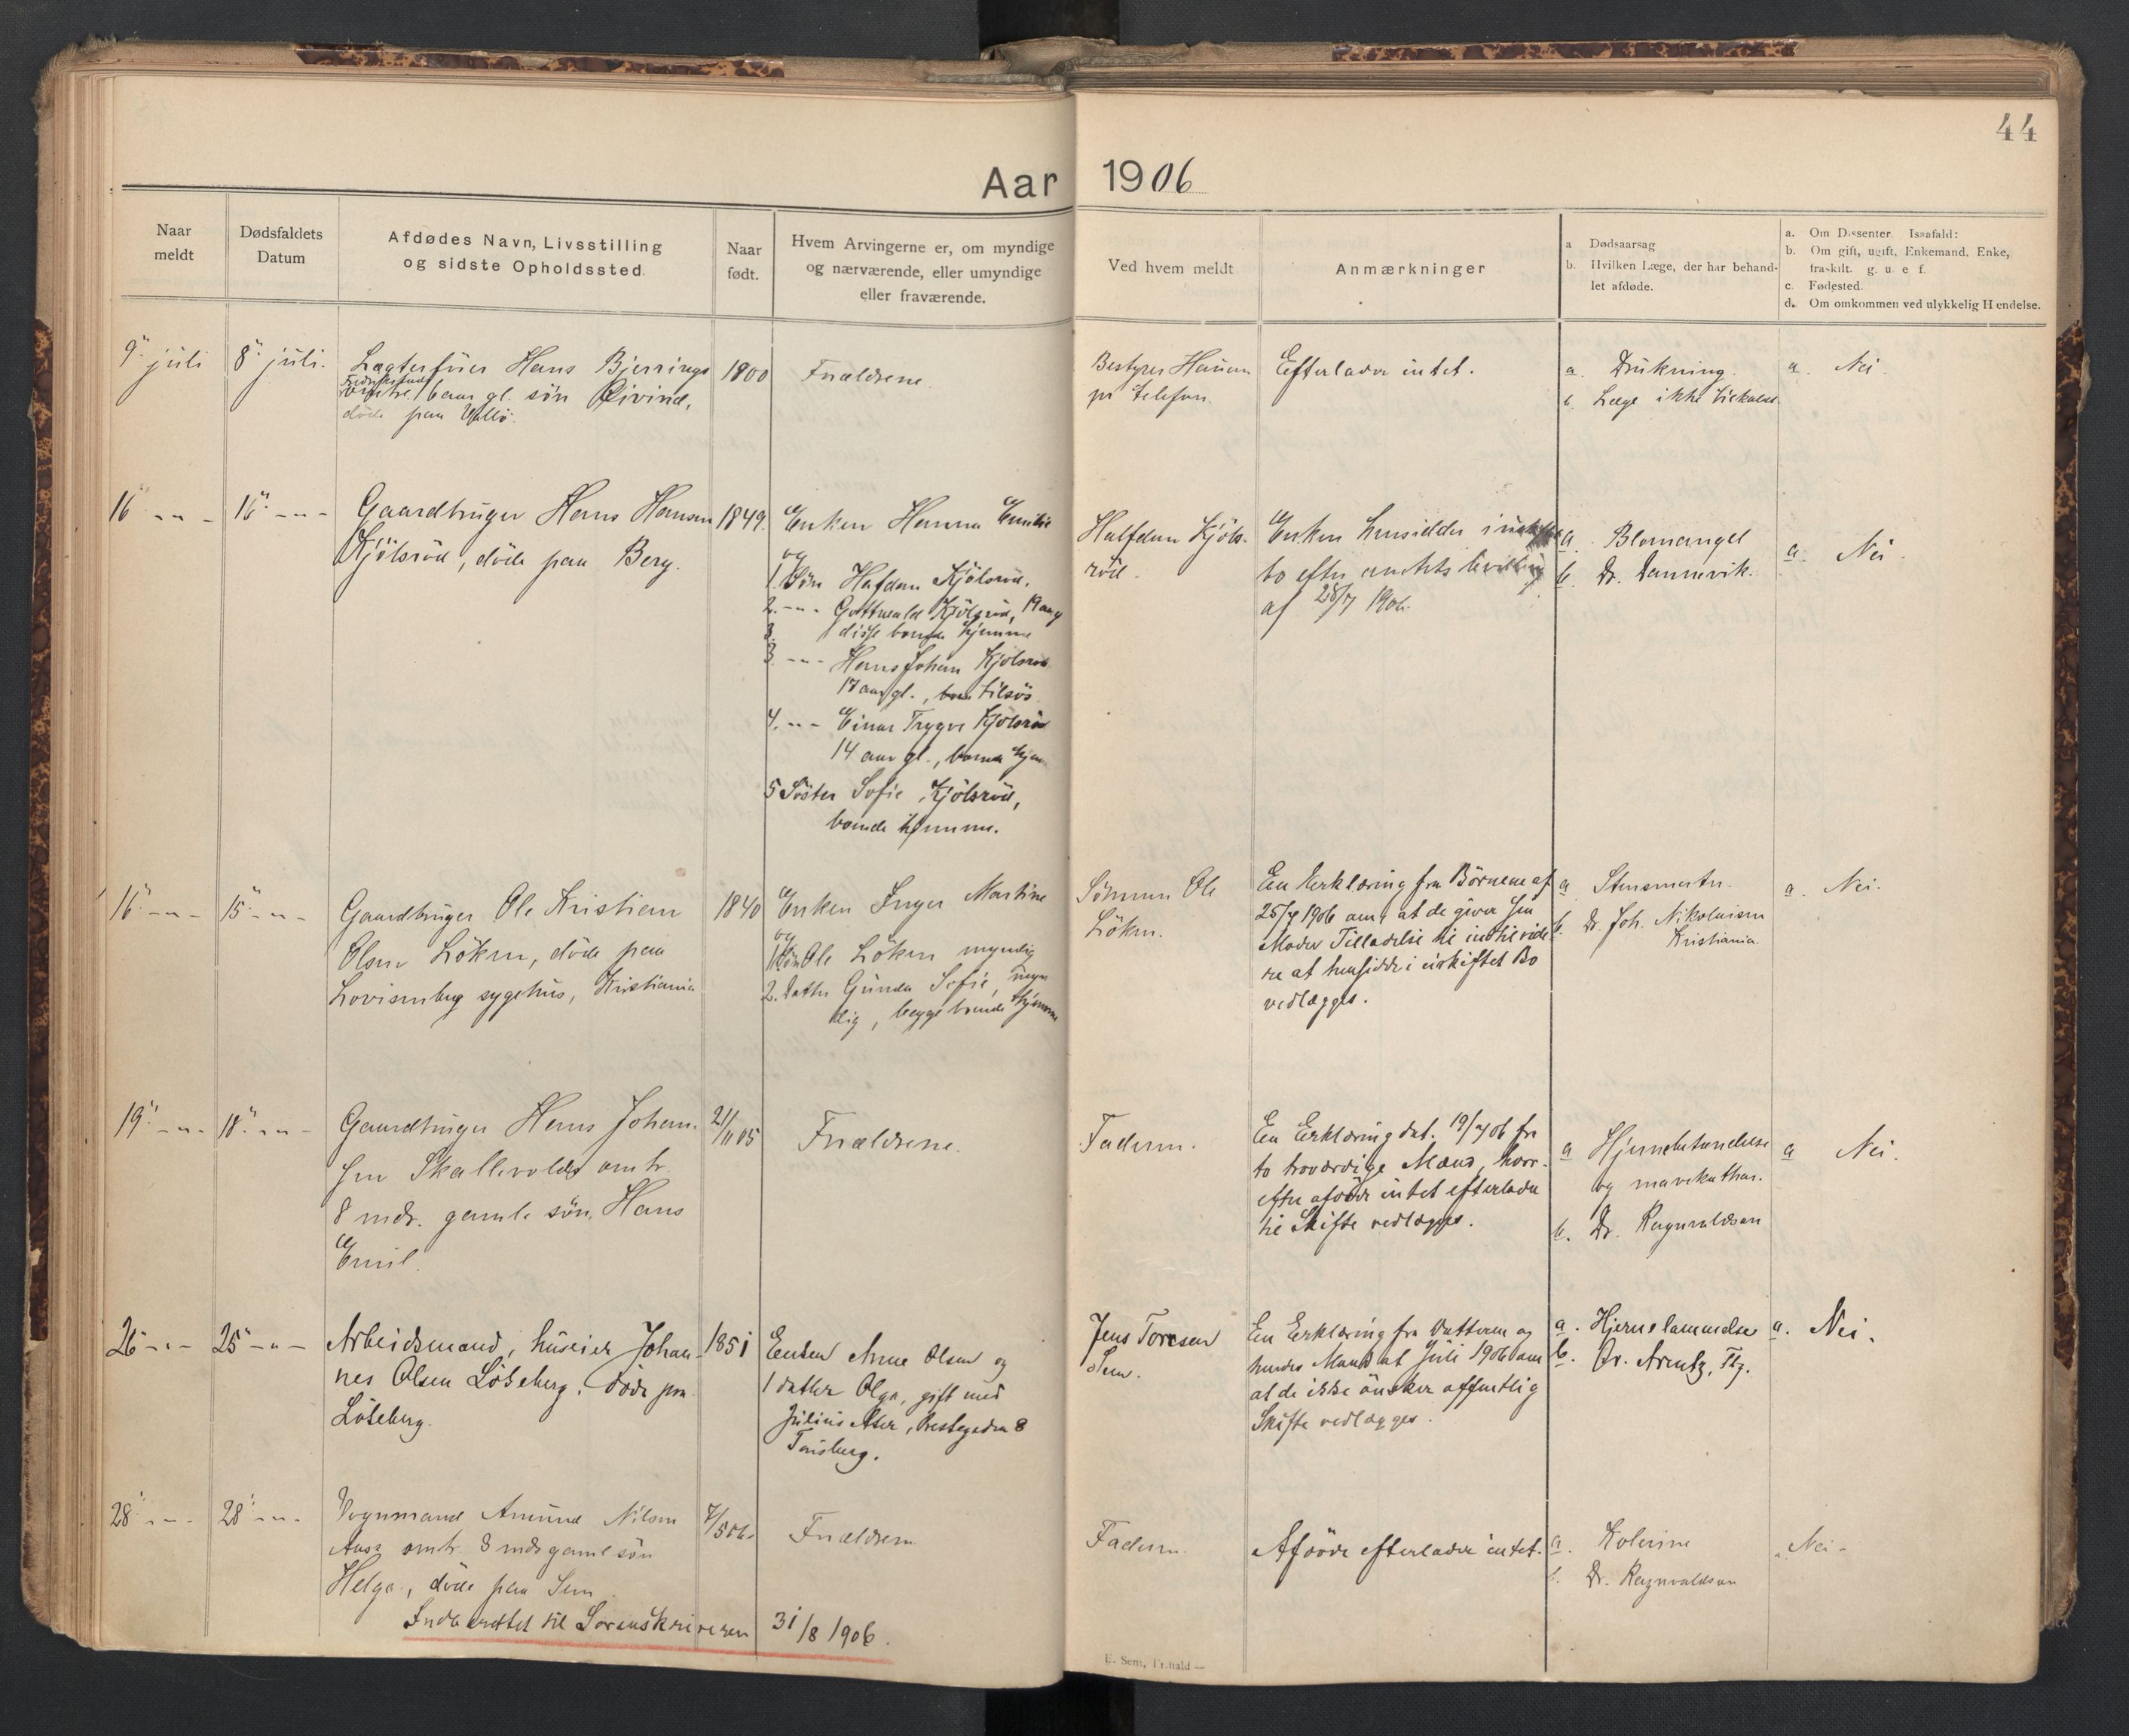 44
Aar 1906
Naar meldt
Dødsfaldets Datum
Afdødes Navn, Livsstilling og sidste Opholdssted.
Naar født.
Hvem Arvingerne er, om myndige og nærværende, eller umyndige eller fraværende.
Ved hvem meldt
Anmærkninger
a Dødsaarsag
b. Hvilken Læge, der har behandlet afdøde.
a. Om Dissenter. Isaafald:
b. Om gift, ugift, Enkemand, Enke, fraskilt. g. u. e f.
c. Fødested.
d. Om omkommen ved ulykkelig Hendelse.
9. juli
8. juli.
Hans Bjerrings
6 aar gl. søn Eivind,
døde paa Vallö.
1800
Forældrene.
Bestyrer Hansen
pr telefon.
Efterlader intet.
a. Drukning.
b. Læge ikke tilkaldt.
a. Nei.
16
16
Gaardbruger Hans Hansen
Kjölsröd, döde paa Berg.
1849.
Enken Hanna Emilie
og
1. Sön Hafdan Kjölsröd.
2. -"- Gottwald Kjölsröd, 19 aar
disse boende hjemme
3. -"- Hans Johan Kjölsröd
17 aar gl., tilsös.
4. -"- Einar Trygve Kjölsröd
14 aar gl., boende hjem
5 Söster Sofie Kjölsröd,
boende hjemme.
Halfdan Kjöls-
röd.
Enken hensidder i uskiftet
bo efter amtets bevilling
af 28/7 1906.
a. Blomangel
b. Dr. Dannevik.
a. Nei.
16
15
Gaardbruger Ole Kristian
Olsen Löken, döde paa
Lovisenberg sygehus, Kristiania
1840
Enken Inger Martine
og
1 Sön Ole Löken myndig
2. Datter Gunda Sofie, myn
dig, begge boende hjemme
Sönnen Ole
Löken.
En Erklæring fra Börnene af
25/7 1906 om, at de giver sin
Moder Tilladelse til indtil vide
re at hensidde i uskiftet Bo
vedlægges.
a.
b. Dr. Joh. Nikolaisen
Kristiania.
a. Nei.
19
18
Gaardbruger Hans Johan-
sen Skallevolds omtr.
8 mdr. gamle sön, Hans
Emil.
21/11 05
Forældrene.
Faderen.
En Erklæring dat. 19/7 06 fra
to troværdige Mænd, hvor-
efter afdöde intet efterlader
til Skifte vedlægges.
a Hjernebetændelse
og mavekathar.
b. Dr. Ragnvaldsen
a Nei.
26
25
Arbeidsmand, huseier Johan-
nes Olsen Löbeberg, döde paa
Löbeberg.
1851
Enken Anne Olsen og
1 datter Olga, gift med
Julius Aker, Prestegaden 8
Tönsberg.
Jens Toresen
Sem.
En Erklæring fra Datteren og
hendes Mand af Juli 1906 om
at de ikke önsker offentlig
Skifte vedlægges.
a. Hjernelammelse
b. Dr. Arentz, Tbg.
a. Nei.
28
28
Vognmand Amund Nilsen
Aas omtr. 3 mdr gaml sön
Helge, döde paa Sem
7/5 06.
Forældrene
Faderen.
Afdöde efterlader intet.
a. Kolerine
b. Dr. Ragnvaldsen
Nei
Indberettet til Sorenskriveren 31/8 1906.
E. Sem, Fr.hald —